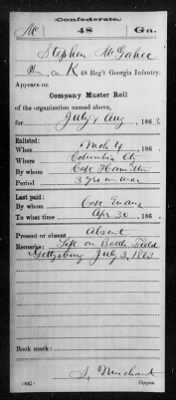 Confederate.
Mc 48 Ga.
Stephen McGahee
Co. K, 48 Reg't Georgia Infantry.
Appears on
Company Muster Roll
of the organization named above,
for July & Aug, 186 3.
Enlisted:
When 186
Where Columbia Cty
By whom Capt Hamilton
Period 3 yrs or war
Last paid:
By whom Capt Evans
To what time Apr 30, 186
Present or absent Absent
Remarks: Left on Battle Field
Gettysburg July 2, 1863
Book mark:
(642) Copyist.